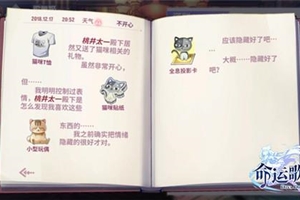 2018.12.17 20:52 天气 不开心
桃井太一殿下居
然又送了猫咪相关的
礼物。
猫咪T恤
虽然非常开心。
但……
我明明控制过表
情，桃井太一殿下是
怎么发现我喜欢这些
猫咪贴纸
东西的……
我之前确实把情绪
隐藏的很好才对。
小型玩偶
应该隐藏好了吧…
…
大概……隐藏好了
吧……
全息投影卡
命运歌